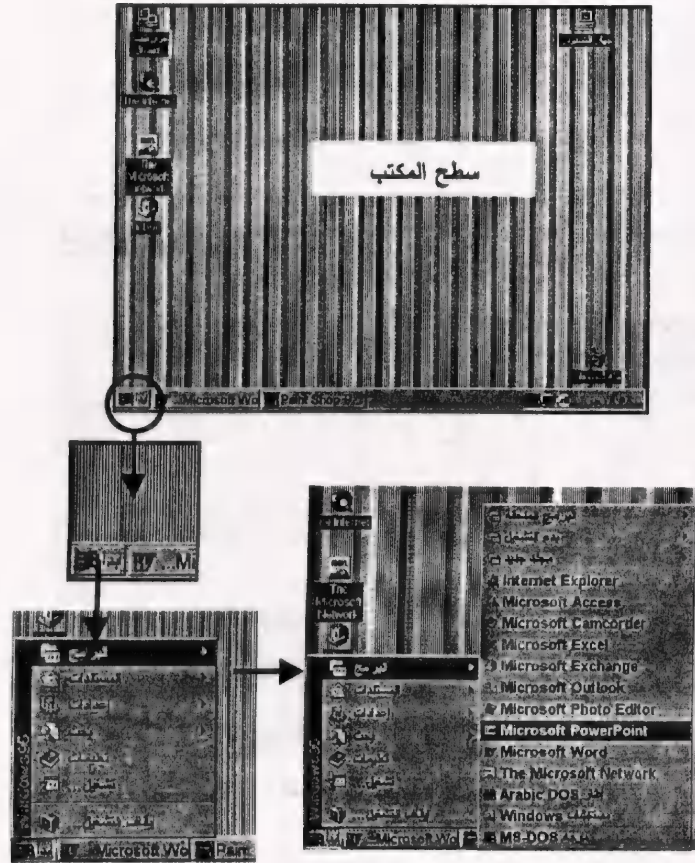 The Internet
The
Microsoft
Network
سطح المكتب
Microsoft Wo
Paint Shop
Mi
البرامج
المستندات
إعدادات
بحث
تعليمات
تشغيل...
إيقاف التشغيل...
Windows95
Microsoft Wo
Paint
The Internet
The
Microsoft
Network
البرامج
المستندات
إعدادات
بحث
تعليمات
تشغيل...
إيقاف التشغيل...
Windows95
Microsoft Wo
البرامج الملحقة
بدء التشغيل
مجلد جديد
Internet Explorer
Microsoft Access
Microsoft Camcorder
Microsoft Excel
Microsoft Exchange
Microsoft Outlook
Microsoft Photo Editor
Microsoft PowerPoint
Microsoft Word
The Microsoft Network
Arabic DOS
مستكشف Windows
MS-DOS